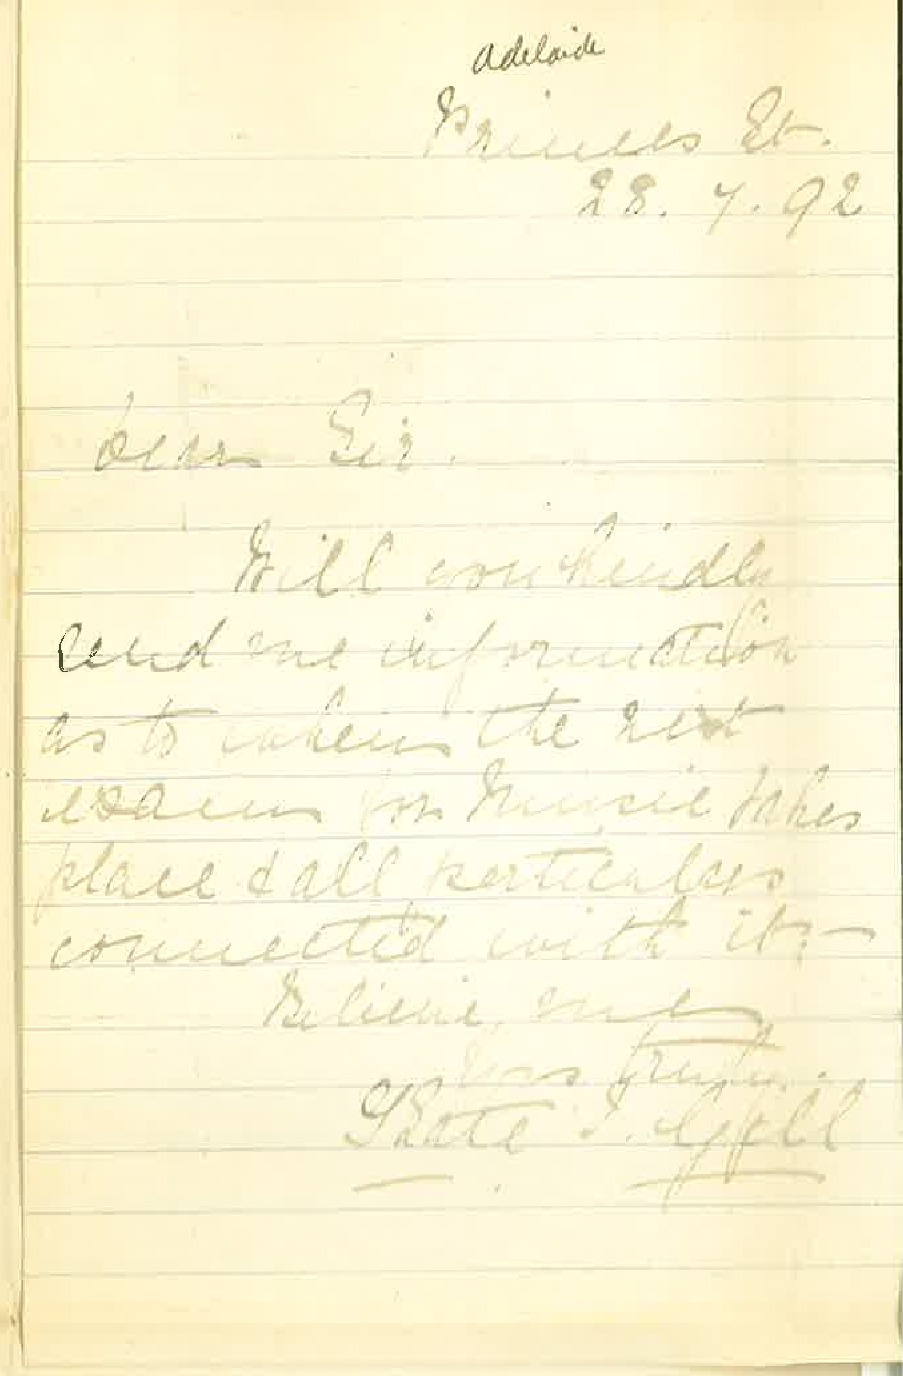 Adelaide
Princes St.
28. 7. 92
Dear Sir.
Will you kindly
send me information
as to when the next
exam for Music takes
place & all particulars
connected with it. —
Believe, me
Yrs truly.
Kate I.